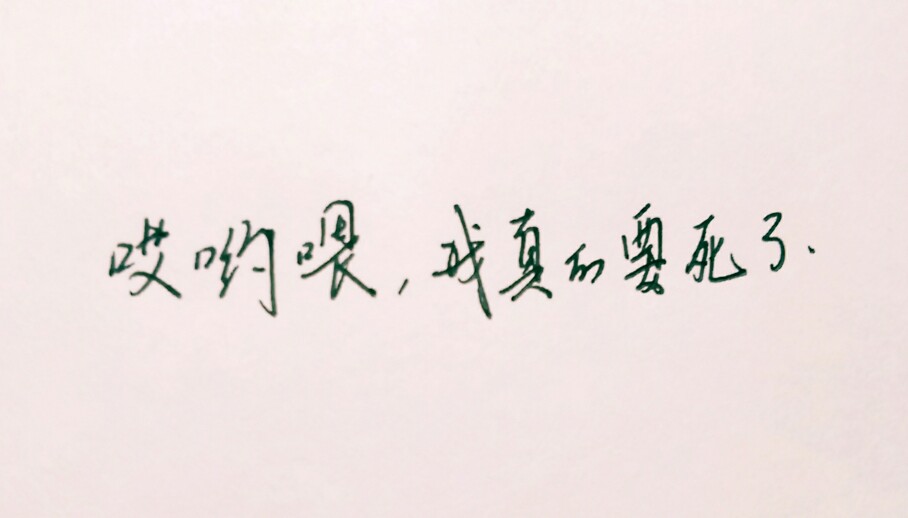 哎哟喂,我真的要死了.